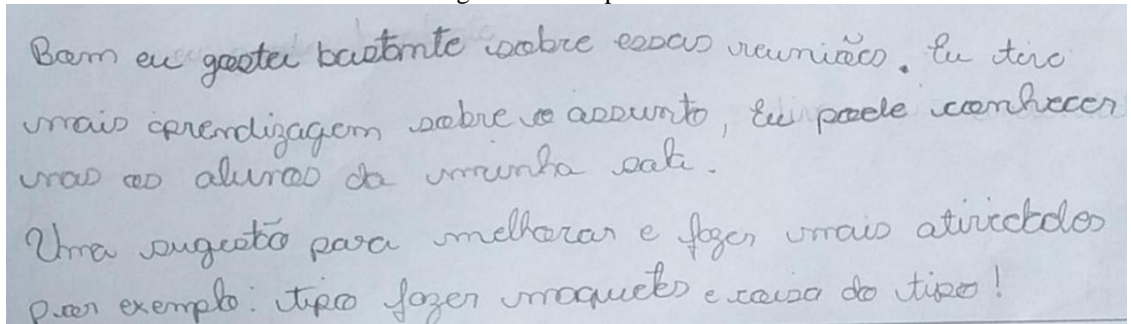 Bom eu gostei bastante sobre essas reunião. Eu tive
mais aprendizagem sobre o assunto, Eu pode conhecer
mas os alunos da minha sala.
Uma sugestão para melhorar e fazer mais atividades
por exemplo: tipo fazer maquetes e coisa do tipo!